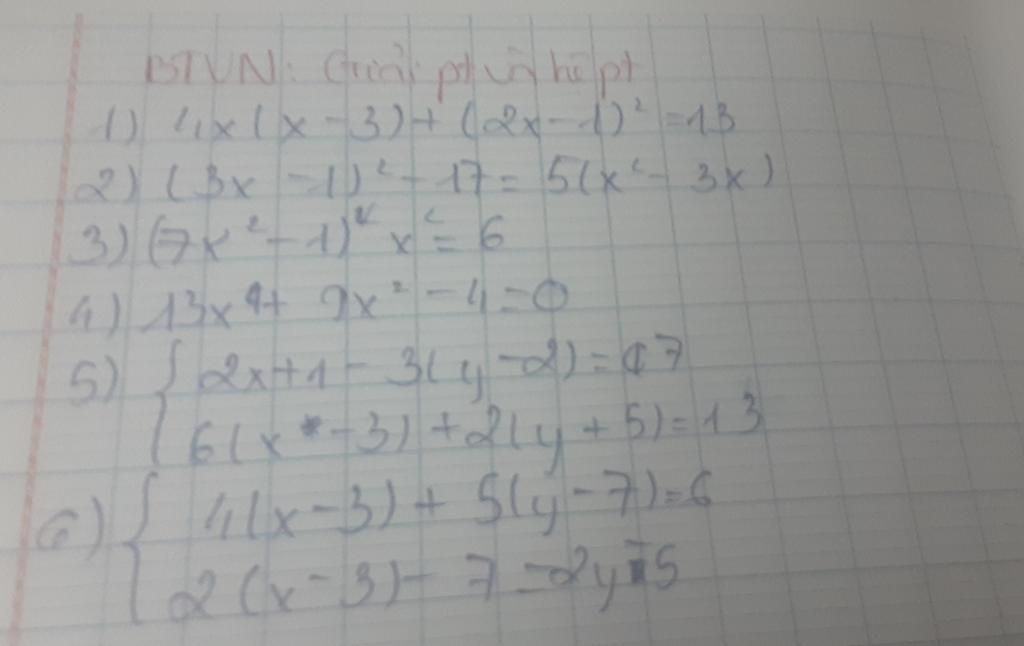 BTVN: Giải pt và hệ pt
1) 4x(x-3)+(2x-1)²=13
2) (3x-1)²-17=5(x²-3x)
3) (7x²-1)² x²=6
4) 13x⁴+9x²-4=0
5) { 2x+1-3(y-2)=17
6(x-3)+2(y+5)=13
6) { 4(x-3)+5(y-7)=6
2(x-3)-7-2y=5